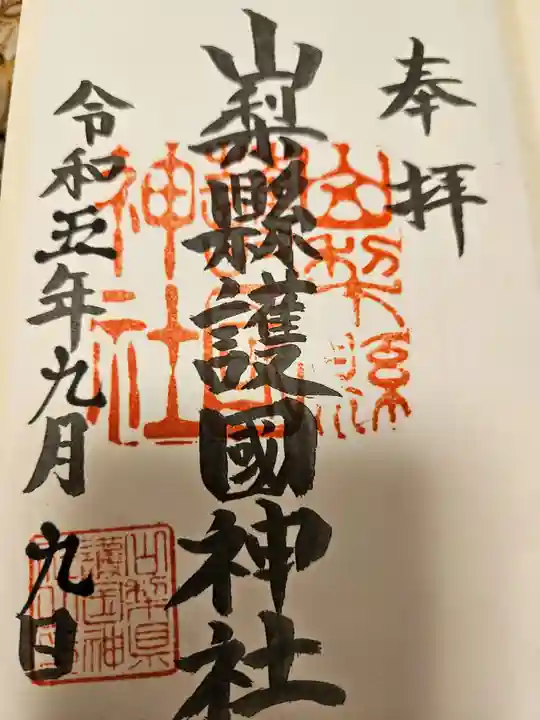 奉拝
山梨縣護國神社
令和五年九月九日
山梨縣
護國
神社
山梨県
護国神